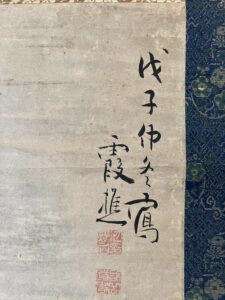 戊子仲冬寫
霞樵